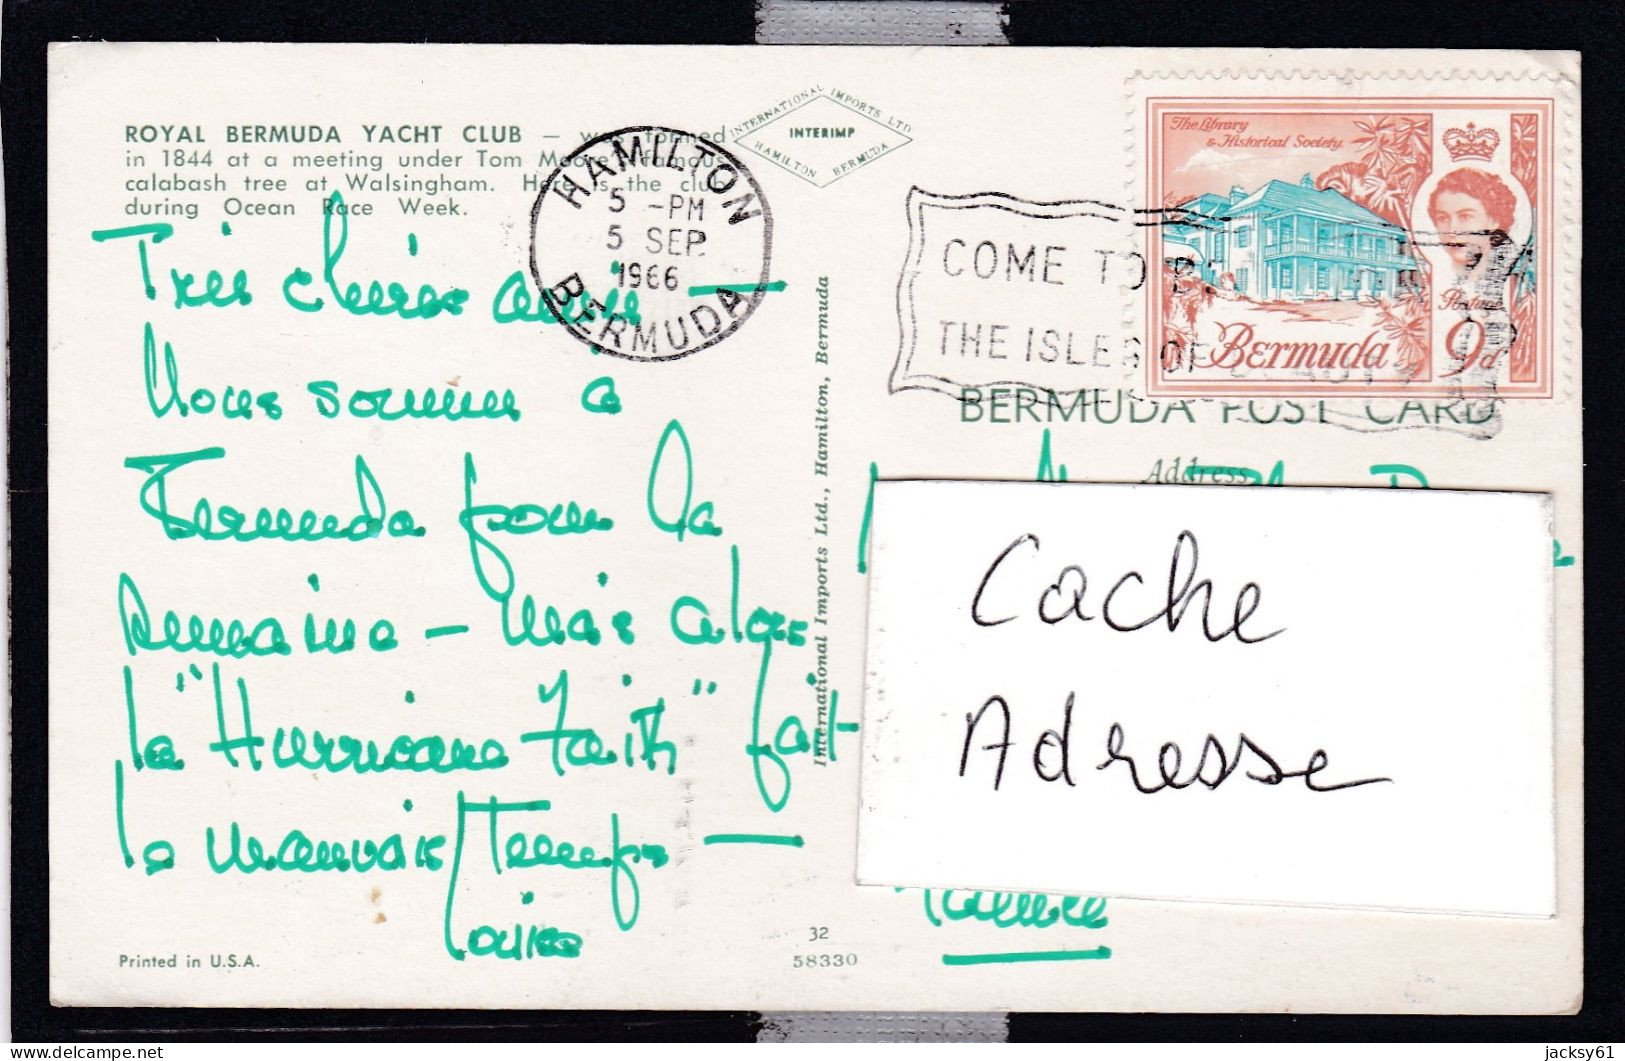 ROYAL BERMUDA YACHT CLUB — was formed
in 1844 at a meeting under Tom Moore's famous
calabash tree at Walsingham. Here is the club
during Ocean Race Week.
INTERNATIONAL IMPORTS LTD
INTERIMP
HAMILTON BERMUDA
HAMILTON
5 -PM
5 SEP
1966
BERMUDA
COME TO
THE ISLES OF
The Library
& Historical Society.
Postage
Bermuda 9d
BERMUDA POST CARD
Address
Très chères amies —
Nous sommes à
Bermuda pour la
semaine — mais alors
la "Hurricane Faith" fait
le mauvais temps —
International Imports Ltd., Hamilton, Bermuda
Cache
Adresse
32
58330
Printed in U.S.A.
jacksy61